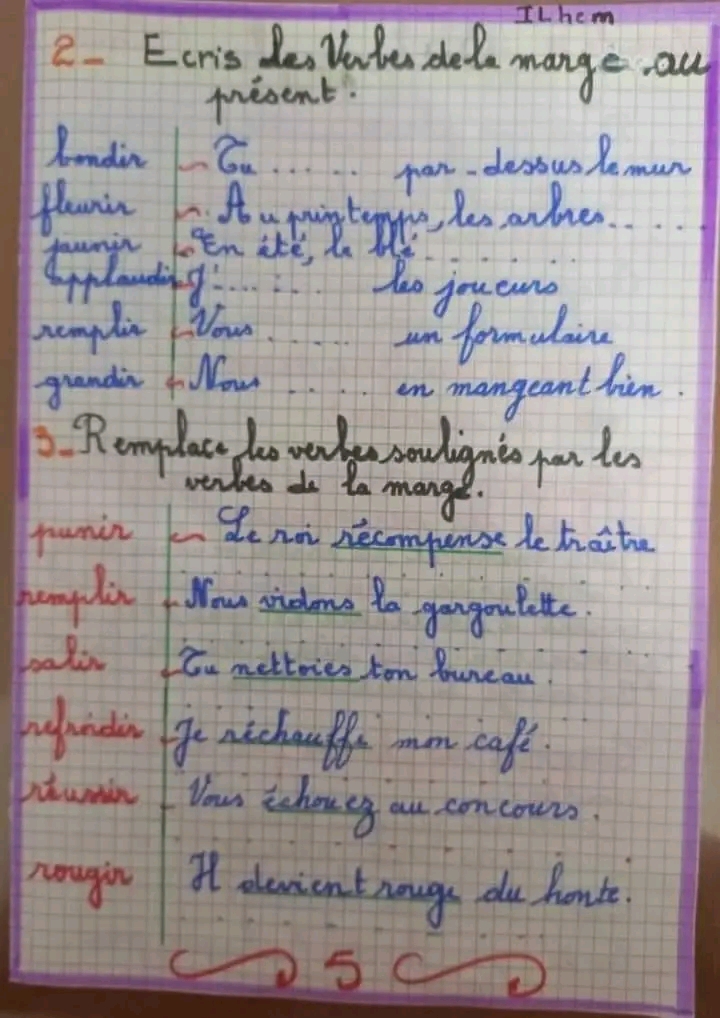 ILhem
2_ Ecris les Verbes de la marge au
présent.
bondir _ Tu ...... par-dessus le mur
fleurir _ Au printemps, les arbres......
jaunir _ En été, le blé.........
applaudir _ J'........ les joueurs
remplir _ Vous ...... un formulaire
grandir _ Nous ..... en mangeant bien.
3_ Remplace les verbes soulignés par les
verbes de la marge.
punir _ Le roi récompense le traître
remplir _ Nous vidons la gargoulette.
salir _ Tu nettoies ton bureau.
refroidir _ Je réchauffe mon café.
réussir _ Vous échouez au concours.
rougir Il devient rouge du honte.
5